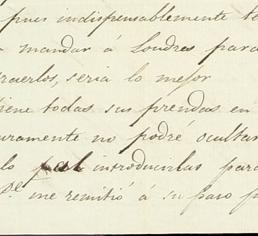 pues indispensablemente te
a mandar á Londres para
traerlos, seria lo mejor
iene todas sus prendas en
uramente no podré ocultar
lo introducirlas para
De me remitió á su paso p